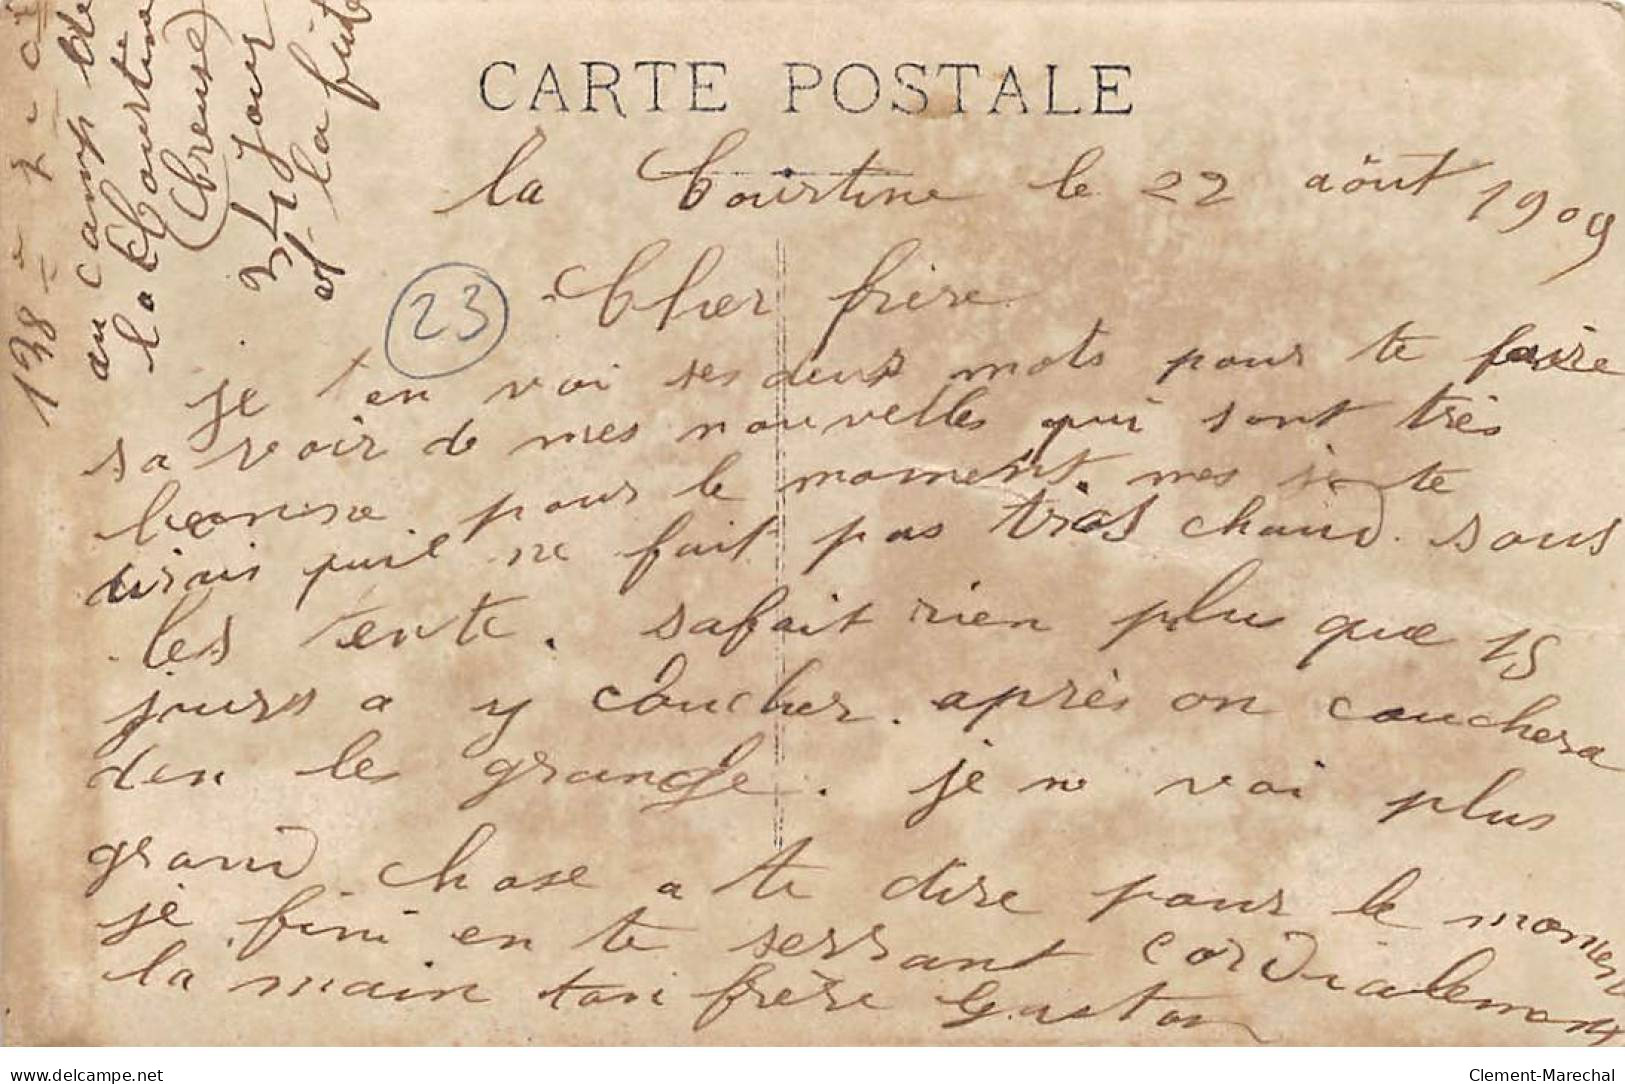 CARTE POSTALE
la Courtine le 22 août 1909
Cher frère
je t'en voi ses deux mots pour te faire
sa voir de mes nouvelles qui sont très
bonne pour le moment. mes je te
dirais quil ne fait pas tros chaud. sous
les tente. safait rien plu que 15
jours a y coucher. après on couchera
den le grange. je ne voi plus
grand chose a te dire pour le moment
je fini en te serrant cordialement
la main ton frère Gaston
138
au camp de
la Courtine
(Creuse)
jour
et la fuite
23
delcampe.net
Clement-Marechal